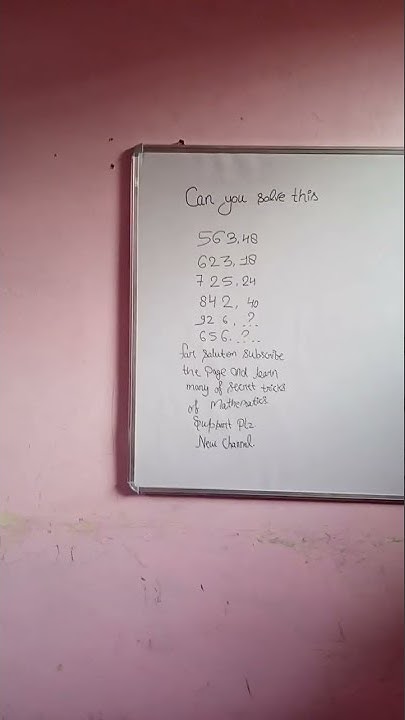 Can you solve this
563.48
623.18
725.24
842, 40
926..?.
656..?..
for soluton subscribe
the page and learn
many of secret tricks
of Mathematics
Support Plz
New Channel